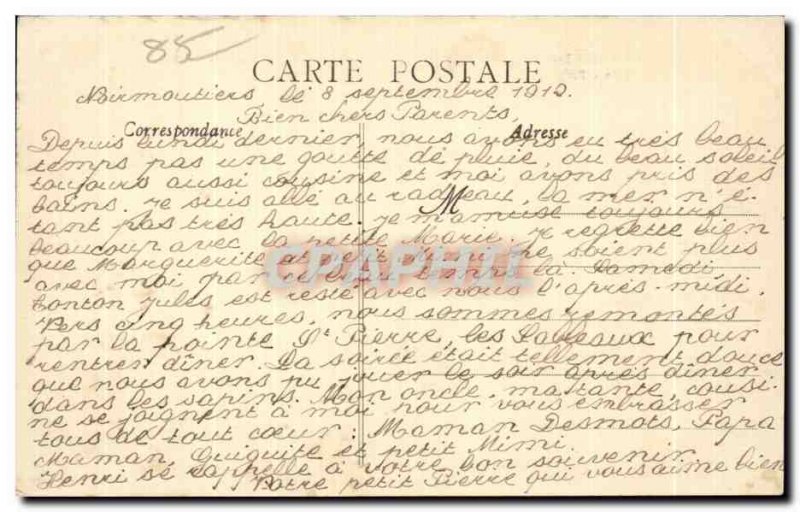 85
CARTE POSTALE
Noirmoutiers le 8 septembre 1912.
Bien chers Parents,
Correspondance
Adresse
Depuis lundi dernier, nous avons eu très beau
temps pas une goutte de pluie, du beau soleil
toujours aussi cousine et moi avons pris des
bains. Je suis allé au radeau, la mer n'é-
tant pas très haute. Je m'amuse toujours
beaucoup avec la petite Marie. Je regrette bien
que Marguerite et petit Mimi ne soient plus
avec moi par ce beau temps là. Samedi,
tonton Jules est resté avec nous l'après-midi.
Vers cinq heures, nous sommes remontés
par la pointe St Pierre, les Sableaux pour
rentrer dîner. La soirée était tellement douce
que nous avons pu jouer le soir après dîner
dans les sapins. Mon oncle, ma tante, cousi-
ne se joignent à moi pour vous embrasser
tous de tout cœur. Maman Desmots, Papa
Maman, Guiguite et petit Mimi.
Henri se rappelle à votre bon souvenir.
Votre petit Pierre qui vous aime bien
CPAPHIL